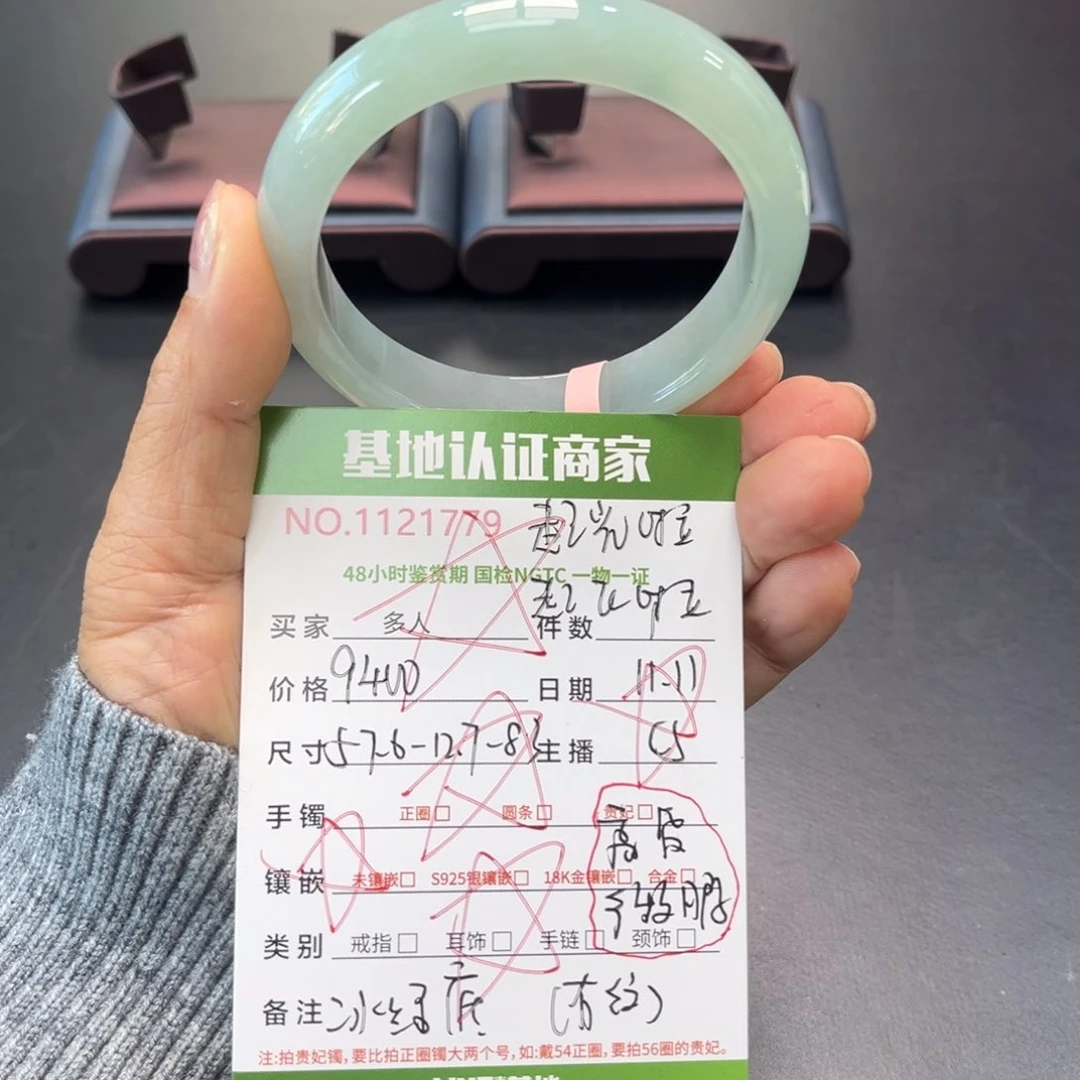 基地认证商家
NO.1121779
48小时鉴赏期 国检NGTC 一物一证
买家 多人 件数
价格 9400 日期 11-11
尺寸 57.6-12.7-8.3 主播
手镯 正圈□ 圆条□ 贵妃□
镶嵌 未镶嵌□ S925银镶嵌□ 18K金镶嵌□ 合金□
类别 戒指□ 耳饰□ 手链□ 颈饰□
备注 冰 底 (有纹)
注:拍贵妃镯,要比拍正圈镯大两个号,如:戴54正圈,要拍56圈的贵妃。